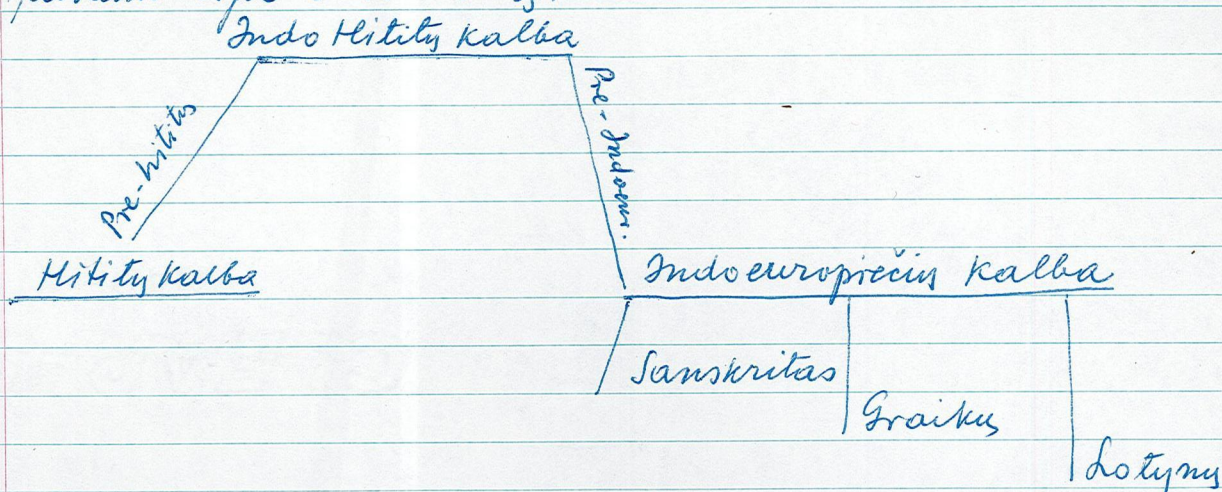 Indo Hititų kalba
Pre-hititų
Pre-Indoeur.
Hititų kalba
Indoeuropiečių kalba
Sanskritas
Graikų
Lotynų